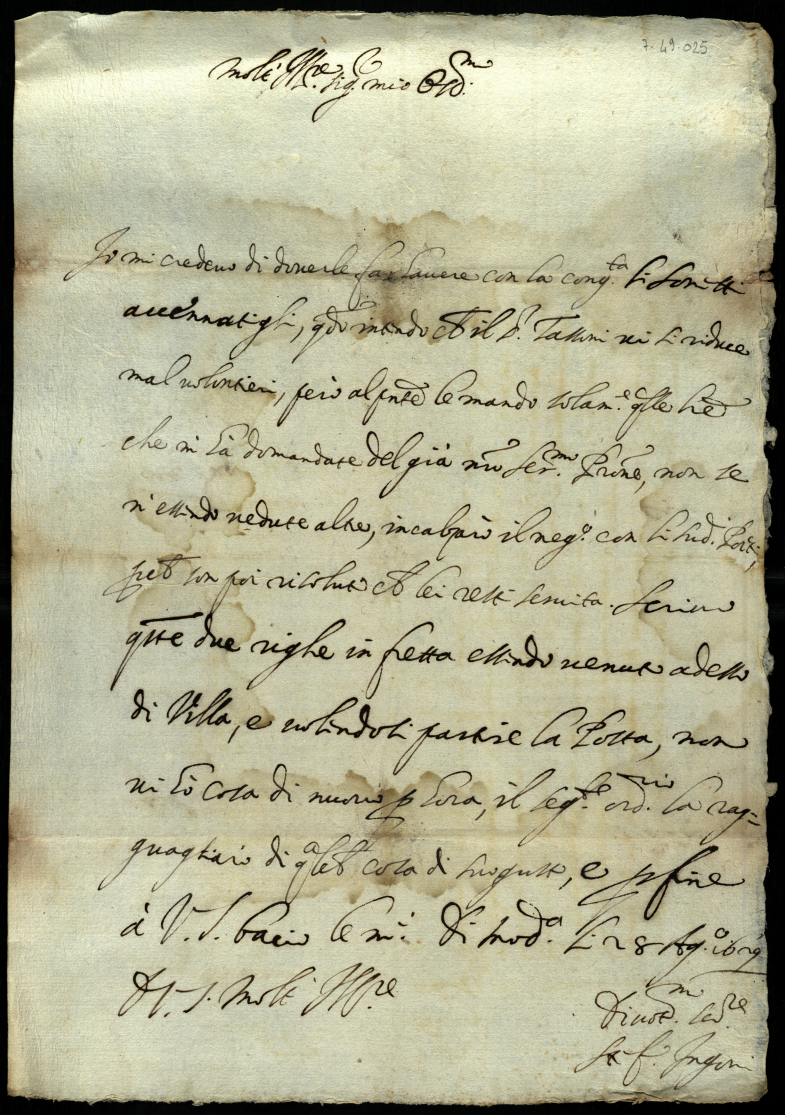 7-49-025
Molt' Ill.re Sig.r mio Oss.mo
Io mi credevo di doverle far havere con la cong.ta li sonetti
accennatigli, q.do intendo ch' il P. Tassoni vi si riduce
mal volontieri, però al p̄nte le mando solam.e q̄lle
che m' hà domandate del già n̄ro Ser.mo P̄rone, non se
n' essendo vedute altre, incalzarò il neg.o con li sud.i
son poi risoluto ch' lei resti servita. Scrivo
q̄ste due righe in fretta essendo venuto adesso
di Villa, e volendosi partire la Posta, non
vi hò cosa di nuovo p hora, il seg.te ord.rio la rag=
guagliarò di q.alch' cosa di suo gusto, e p fine
à V. S. bacio le m.i Di Mod.a li 28 Ag.o 1629
Di V. S. Molt' Ill.re
Divot.mo Ser.re